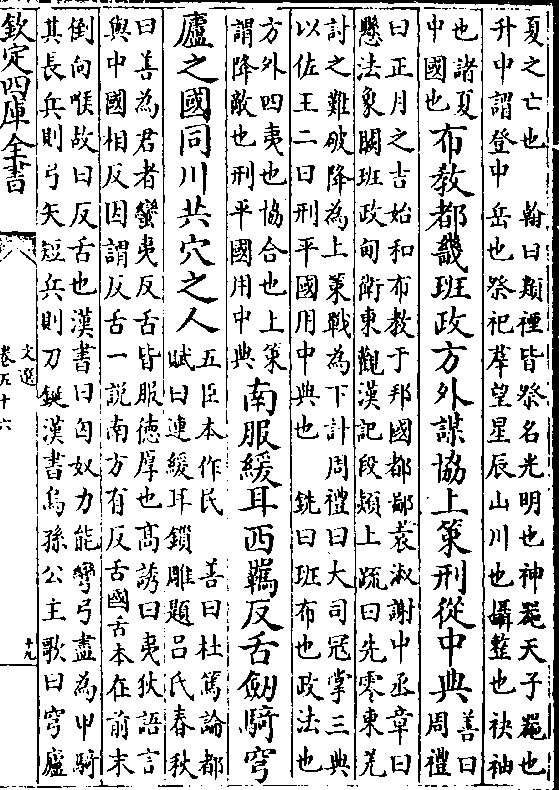 夏之亡也　翰曰類禋皆祭名光明也神器天子器也
升中謂登中岳也祭祀羣望星辰山川也攝整也袂袖
也諸夏
中國也
布教都畿班政方外謀協上策刑從中典
善曰
周禮
曰正月之吉始和布教于邦國都鄙袁淑謝中丞章曰
懸法象闕班政甸衛東觀漢記段熲上疏曰先零東羌
討之難破降為上策戰為下計周禮曰大司冦掌三典
以佐王二曰刑平國用中典也　銑曰班布也政法也
方外四夷也協合也上策
謂降敵也刑平國用中典
南服緩耳西羈反舌劒騎穹
廬之國同川共穴之人
五臣本作民　善曰杜篤論都
賦曰連緩耳鎖雕題呂氏春秋
曰善為君者蠻夷反舌皆服徳厚也高誘曰夷狄語言
與中國相反因謂反舌一説南方有反舌國舌本在前末
倒向喉故曰反舌也漢書曰匈奴力能彎弓盡為甲騎
其長兵則弓矢短兵則刀鋋漢書烏孫公主歌曰穹廬
欽定四庫全書
文選
卷五十六
十九